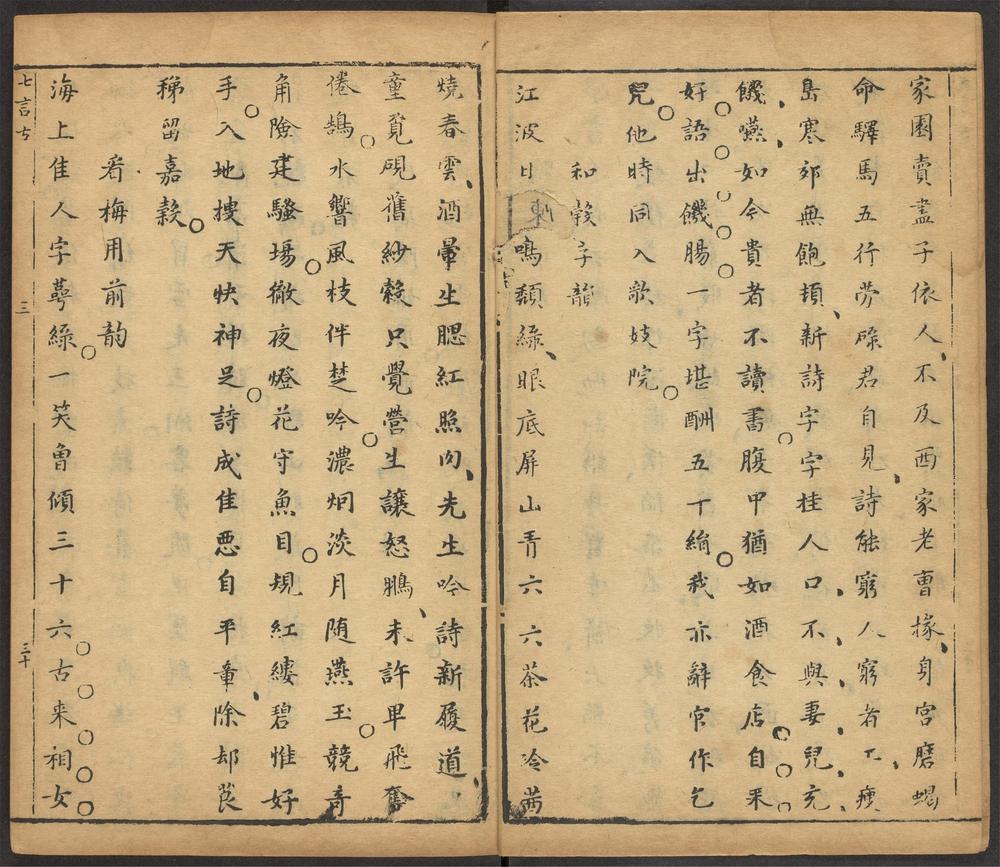 家園賣盡子依人不及西家老曹掾身宮磨蝎
命驛馬五行勞碌君自見詩能窮人窮者工瘦
島寒郊無飽頓新詩字字桂人口不與妻兒充
饑嚥如今貴者不讀書腹甲猶如酒食店自釆
好語出饑腸一字堪酬五千絹我亦辭官作乞
兒他時同入歌妓院
和穀字韻
江波日鳴頹綠眼底屏山青六六茶花冷茜
燒春雲酒暈生腮紅照肉先生吟詩新履道
童覓硯舊紗縠只覺營生讓怒鵬未許卑飛奮
倦鵠水響風枝伴楚吟濃烟淡月随燕玉競奇
角險建騷場徹夜燈花守魚目規紅縷碧惟好
手入地搜天快神足詩成佳惡自平章除却莨
稊留嘉穀
看梅用前韵
海上佳人字萼綠一笑曾傾三十六古来相女
七言古
三
三十